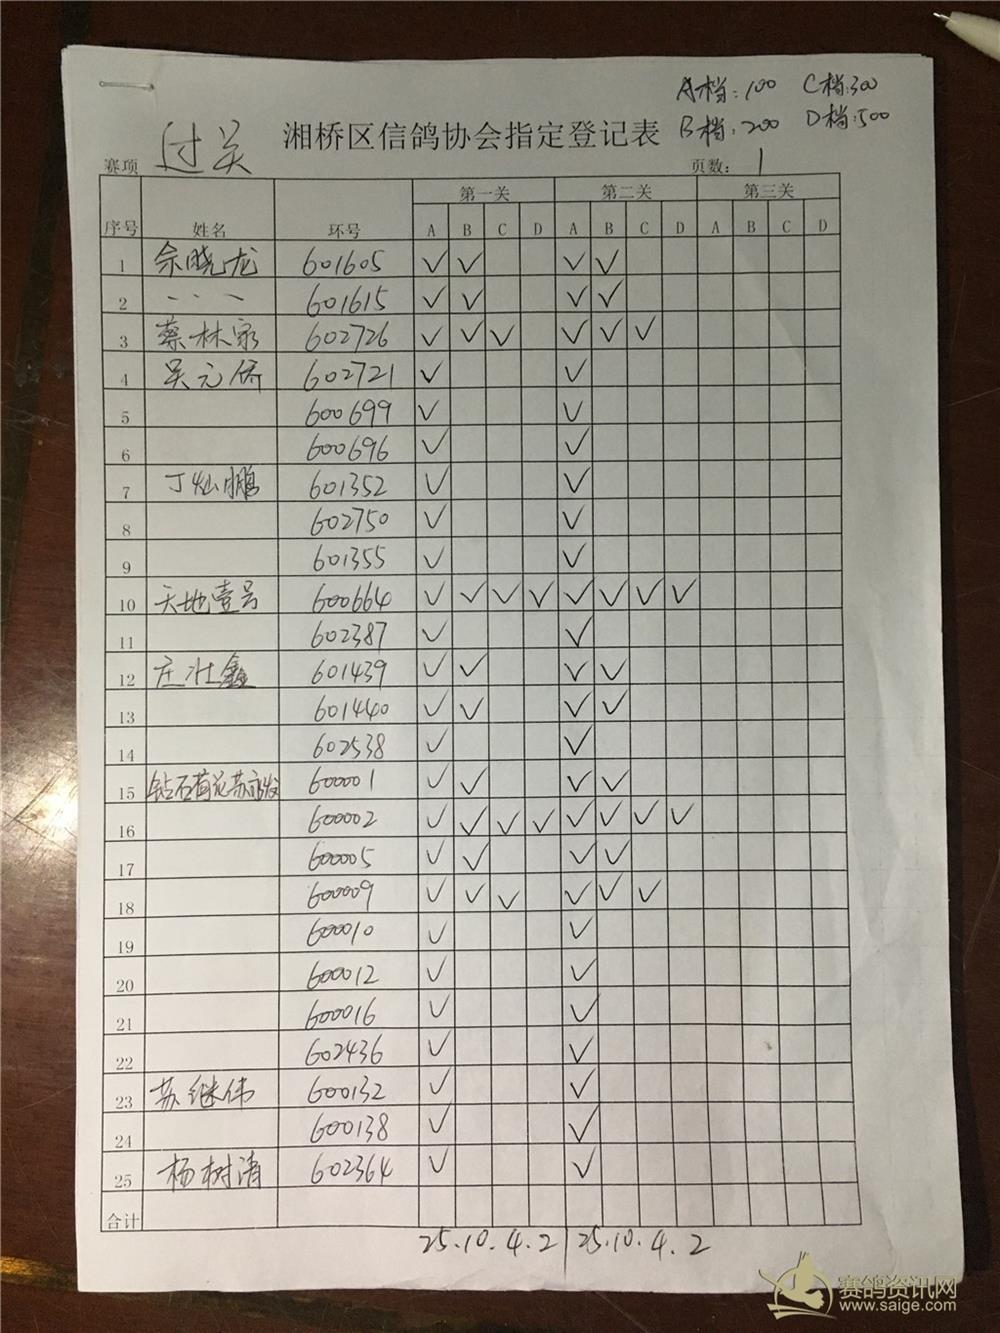 A档:100 C档:300
湘桥区信鸽协会指定登记表 B档:200 D档:500
赛项 过关 页数: 1
序号 姓名 环号 第一关 第二关 第三关
A B C D A B C D A B C D
1 佘晓龙 601605 ✓ ✓ ✓ ✓
2 、、、 601615 ✓ ✓ ✓ ✓
3 蔡林家 602726 ✓ ✓ ✓ ✓ ✓ ✓
4 吴元侨 602721 ✓ ✓
5 600699 ✓ ✓
6 600696 ✓ ✓
7 丁灿鹏 601352 ✓ ✓
8 602750 ✓ ✓
9 601355 ✓ ✓
10 天地壹号 600664 ✓ ✓ ✓ ✓ ✓ ✓ ✓ ✓
11 602387 ✓ ✓
12 庄壮鑫 601439 ✓ ✓ ✓ ✓
13 601440 ✓ ✓ ✓ ✓
14 602538 ✓ ✓
15 钻石荷花苏永发 600001 ✓ ✓ ✓ ✓
16 600002 ✓ ✓ ✓ ✓ ✓ ✓ ✓ ✓
17 600005 ✓ ✓ ✓ ✓
18 600009 ✓ ✓ ✓ ✓ ✓ ✓
19 600010 ✓ ✓
20 600012 ✓ ✓
21 600016 ✓ ✓
22 602436 ✓ ✓
23 苏继伟 600132 ✓ ✓
24 600138 ✓ ✓
25 杨树清 602364 ✓ ✓
合计
25.10.4.2 | 25.10.4.2
赛鸽资讯网
www.saige.com